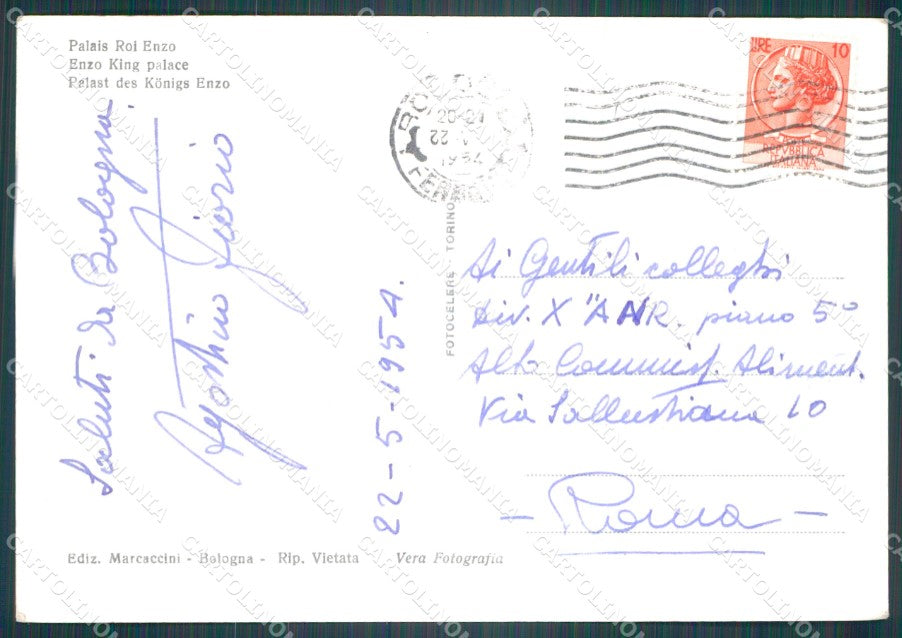 Palais Roi Enzo
Enzo King palace
Palast des Königs Enzo
Saluti da Bologna.
Agostino
22-5-1954.
LIRE 10
REPVBBLICA
ITALIANA
20-21
22
1954
FERROVIA
FOTOCELERE - TORINO
Ai Gentili colleghi
Div. X "ANR. piano 5°
Alto Commiss. Aliment.
Via Sallustiana 10
- Roma -
Ediz. Marcaccini - Bologna - Rip. Vietata
Vera Fotografia
CARTOLINOMANIA